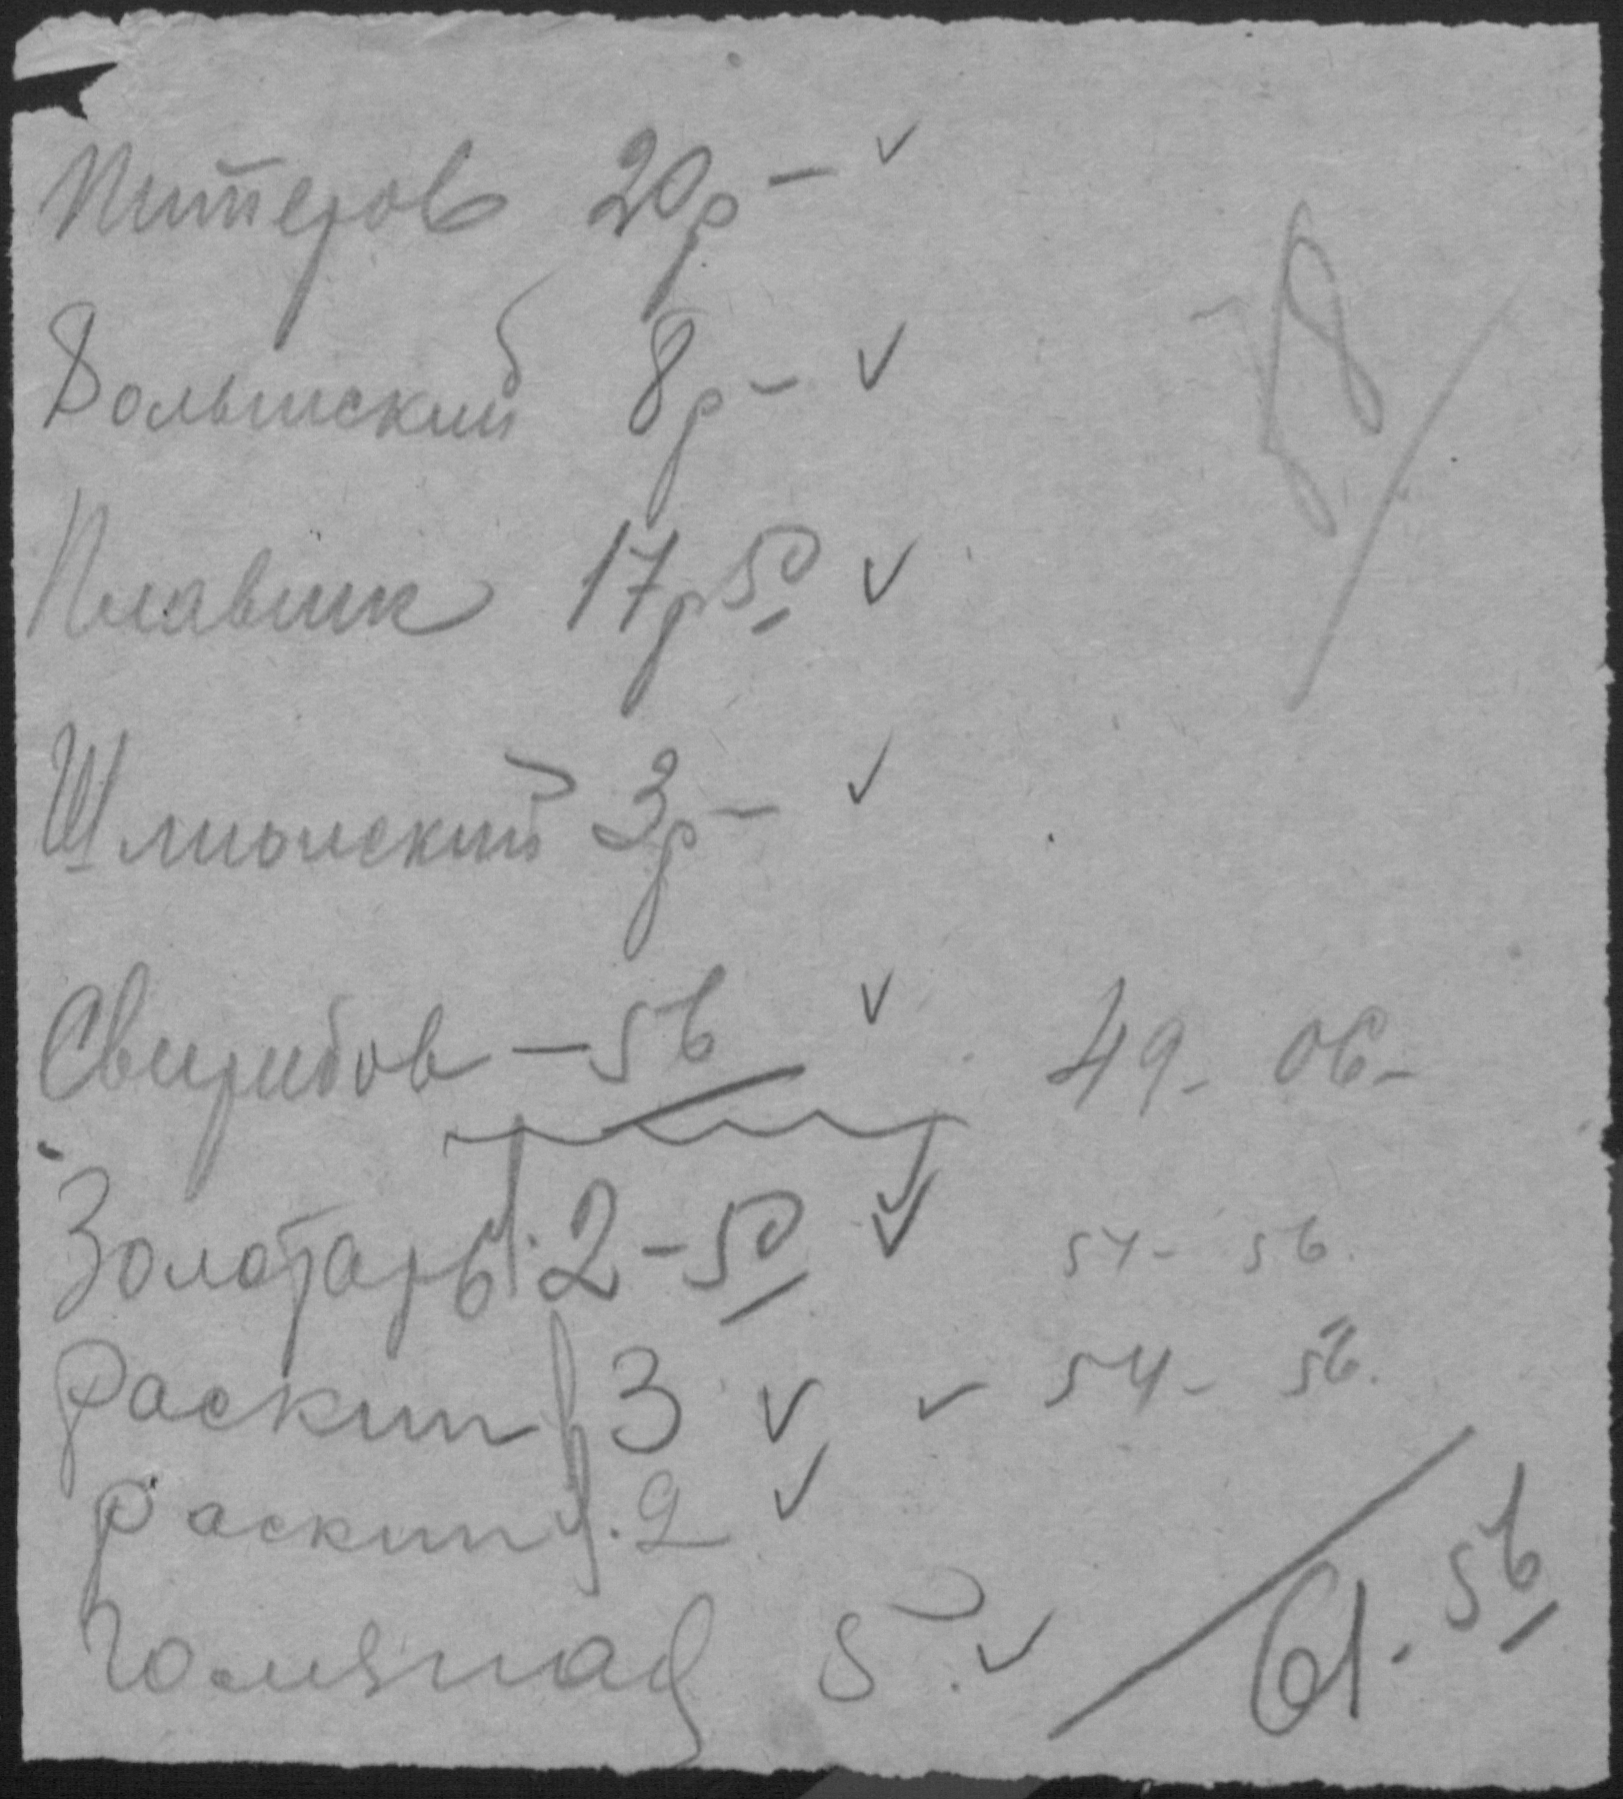 Питеров 20р –
Волынский 8р –
Плавник 17р 50
Шмионский 3р –
Свирибов – 56 49 – 06 –
Золотарь 2 – 50 54 – 56.
Раскин 3 54 – 56.
Раскин 2
Голязнад 5 61 – 56